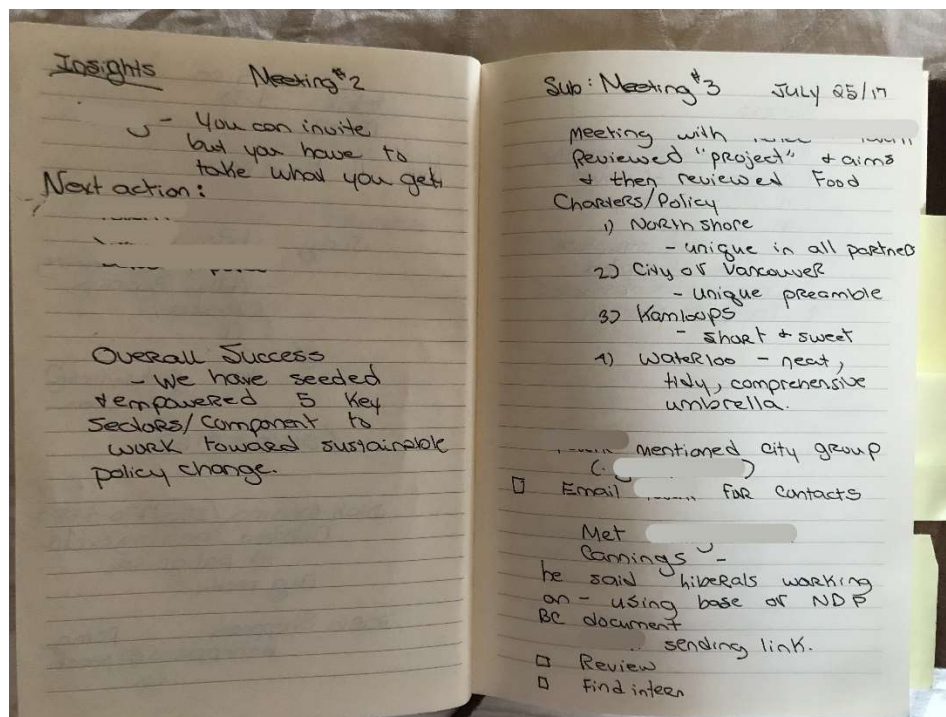 Insights Meeting #2
- You can invite
but you have to
take what you get.
Next action:
Overall Success
- We have seeded
& empowered 5 Key
Sectors/Component to
work toward sustainable
policy change.
Sub: Meeting #3 JULY 25/17
Meeting with
Reviewed "project" & aims
& then reviewed Food
Charters/Policy
1) North Shore
- unique in all partners
2) City of Vancouver
- unique preamble
3) Kamloops
- short & sweet
4) Waterloo - neat,
tidy, comprehensive
umbrella.
mentioned city group
☐ Email for contacts
Met
Cannings -
he said Liberals working
on - using base of NDP
BC document
sending link.
☐ Review
☐ Find intern